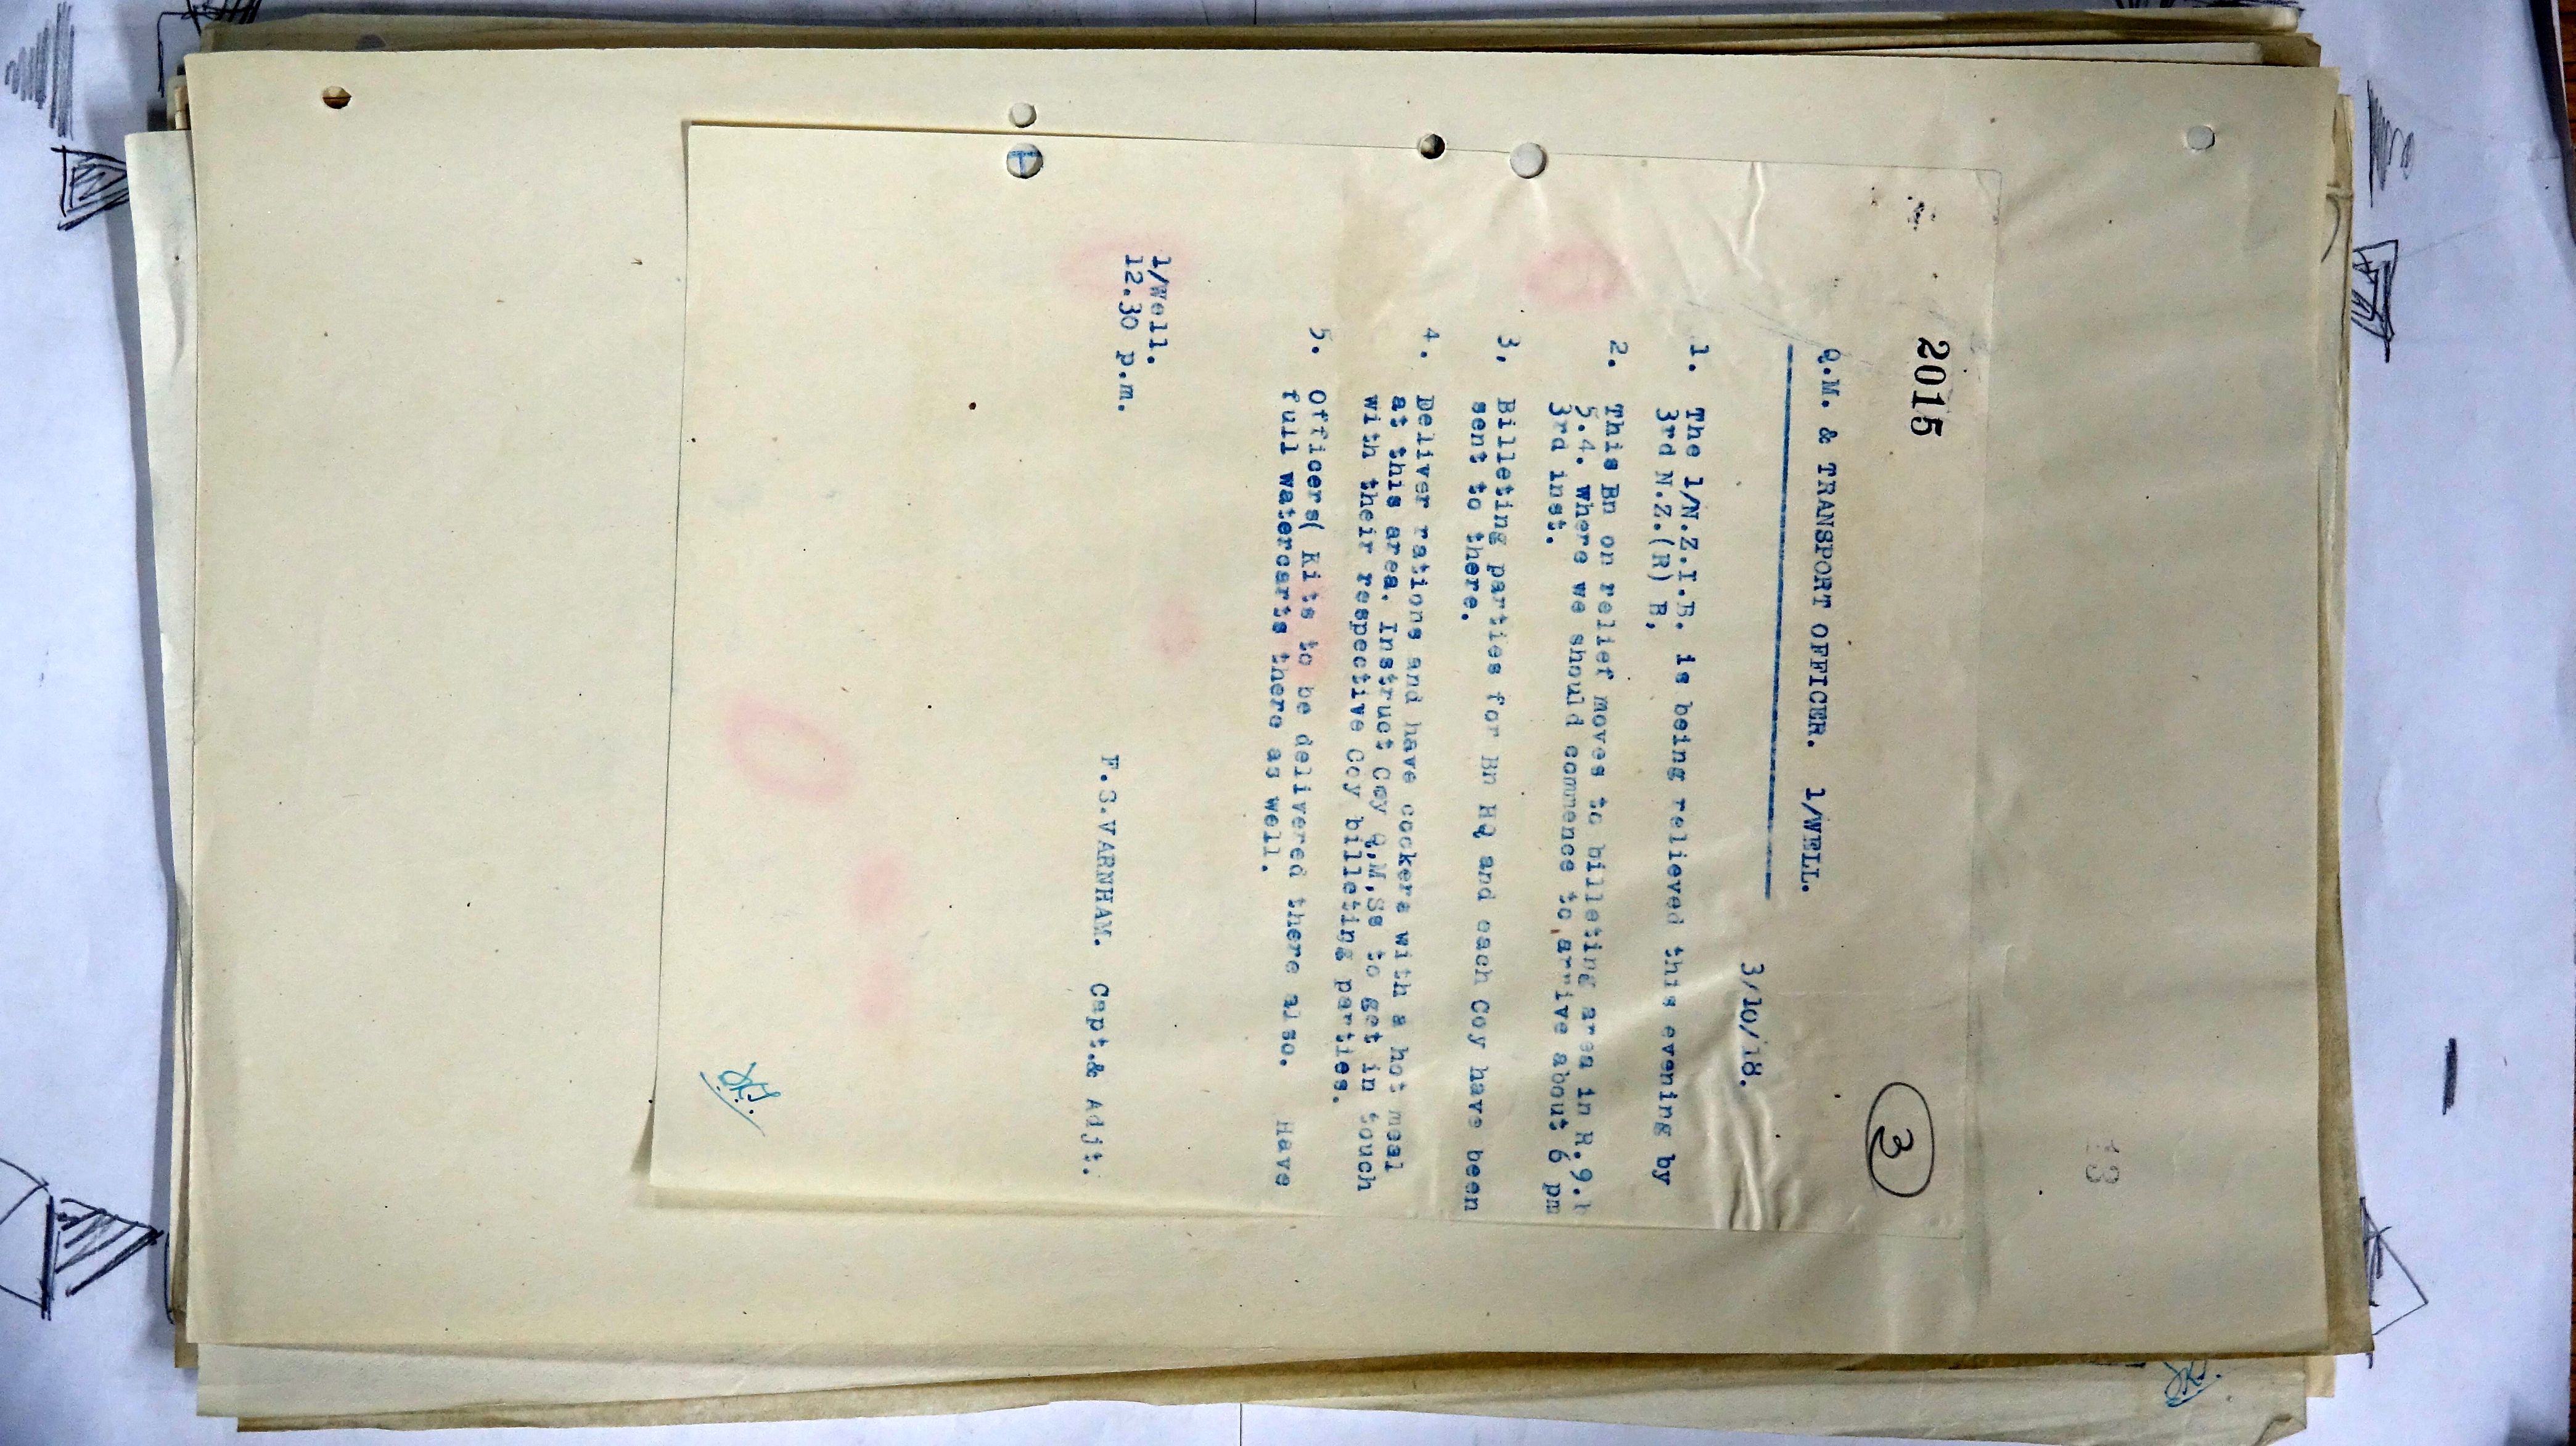 13
2015
3
Q.M. & TRANSPORT OFFICER. 1/WELL.
3/10/18.
1. The 1/N.Z.I.B. is being relieved this evening by
3rd N.Z.(R) B,
2. This Bn on relief moves to billeting area in R.9.b
5.4. where we should commence to arrive about 6 pm
3rd inst.
3, Billeting parties for Bn HQ and each Coy have been
sent to there.
4. Deliver rations and have cookers with a hot meal
at this area. Instruct Coy Q,M,Ss to get in touch
with their respective Coy billeting parties.
5. Officers( Kits to be delivered there also. Have
full watercarts there as well.
1/Well.
12.30 p.m.
F.S.VARNHAM. Capt.& Adjt.